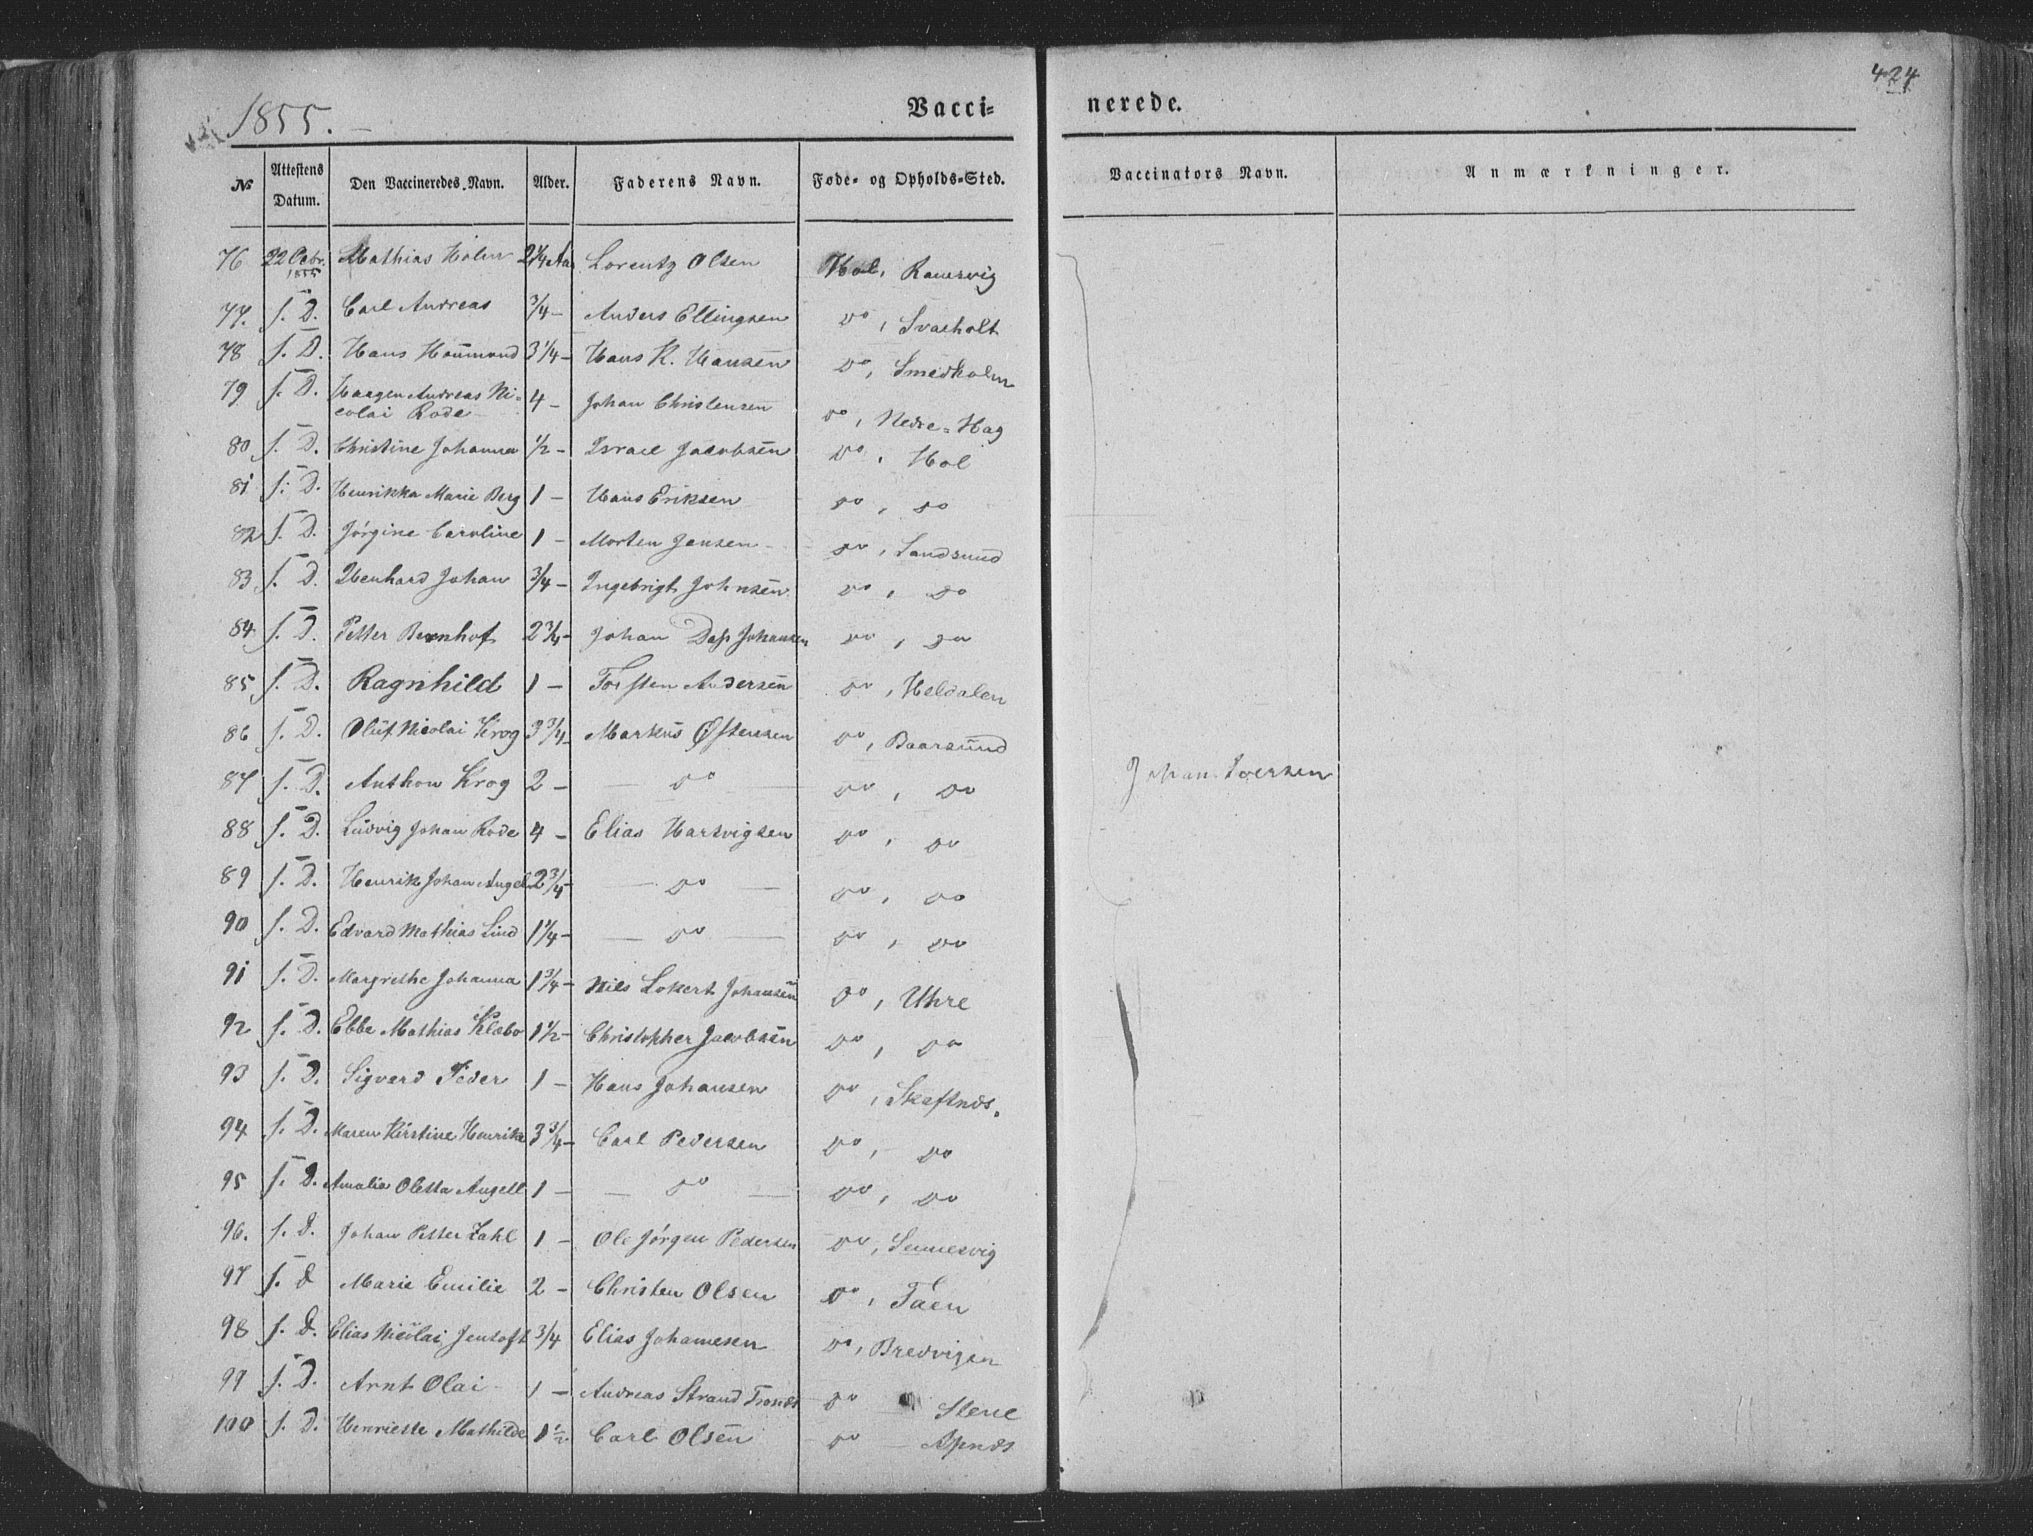 424
1855.
Vacci= nerede.
№ Attestens Datum. Den Vaccineredes Navn. Alder. Faderens Navn. Føde- og Opholds-Sted. Vaccinators Navn. Anmærkninger.
76 22 Octbr. 1855 Mathias Holm 2 1/4 Aar Lorentz Olsen Hol, Ramsvig
77. s. D. Carl Andreas 3/4 – Anders Ellingsen do, Svarholt
78 s. D. Hans Hoümond 3 1/4 – Hans K. Hansen do, Smedholm
79 s. D. Haagen Andreas Ni=
colai Rode 4 – Johan Christensen do, Nedre=Hag
80 s. D. Christine Johanna 1/2 – Israel Jacobsen do, Hol
81 s. D. Henrikka Marie Berg 1 – Hans Eriksen do, do
82 s. D. Jørgine Caroline 1 – Morten Jensen do, Sandsund
83 s. D. Ibenhard Johan 3/4 – Ingebrigt Johnsen do, do
84 s. D. Petter Bernhof 2 3/4 – Johan Dass Johansen do, do
85 s. D. Ragnhild 1 – Torsten Andersen do, Heldalen
86 s. D. Oluf Nicolai Krog 3 3/4 – Markus Østensen do, Baarsund
87 s. D. Anthon Krog 2 – do do, do
88 s. D. Ludvig Johan Rode 4 – Elias Hartvigsen do, do
89 s. D. Henrik Johan Angel 2 3/4 – do – do, do
90 s. D. Edvard Mathias Lind 1 1/4 – do – do, do
91 s. D. Margrethe Johanna 1 3/4 – Nils Lokert Johansen do, Uhre
92 s. D. Ebbe Mathias Klæbo 1 1/2 – Christopher Jacobsen do, do
93 s. D. Sigvard Peder 1 – Hans Johansen do, Skaftnæs.
94 s. D. Maren Kirstine Henrikke 3 3/4 – Carl Pedersen do, do
95 s. D. Amalia Oletta Angell 1 – do – do, do
96. s. D. Johan Petter Zahl 1 – Ole Jørgen Pedersen do, Sennesvig
97 s. D Marie Emilie 2 – Christen Olsen do, Taen
98 s. D. Elias Nicolai Jentoft 3/4 Elias Johannesen do, Bredvigen
99 s. D. Arnt Olai 1 – Andreas Strand do Stene
100 s. D. Henriette Mathilde 1 1/2 Carl Olsen do – Apnæs
Johan Iversen